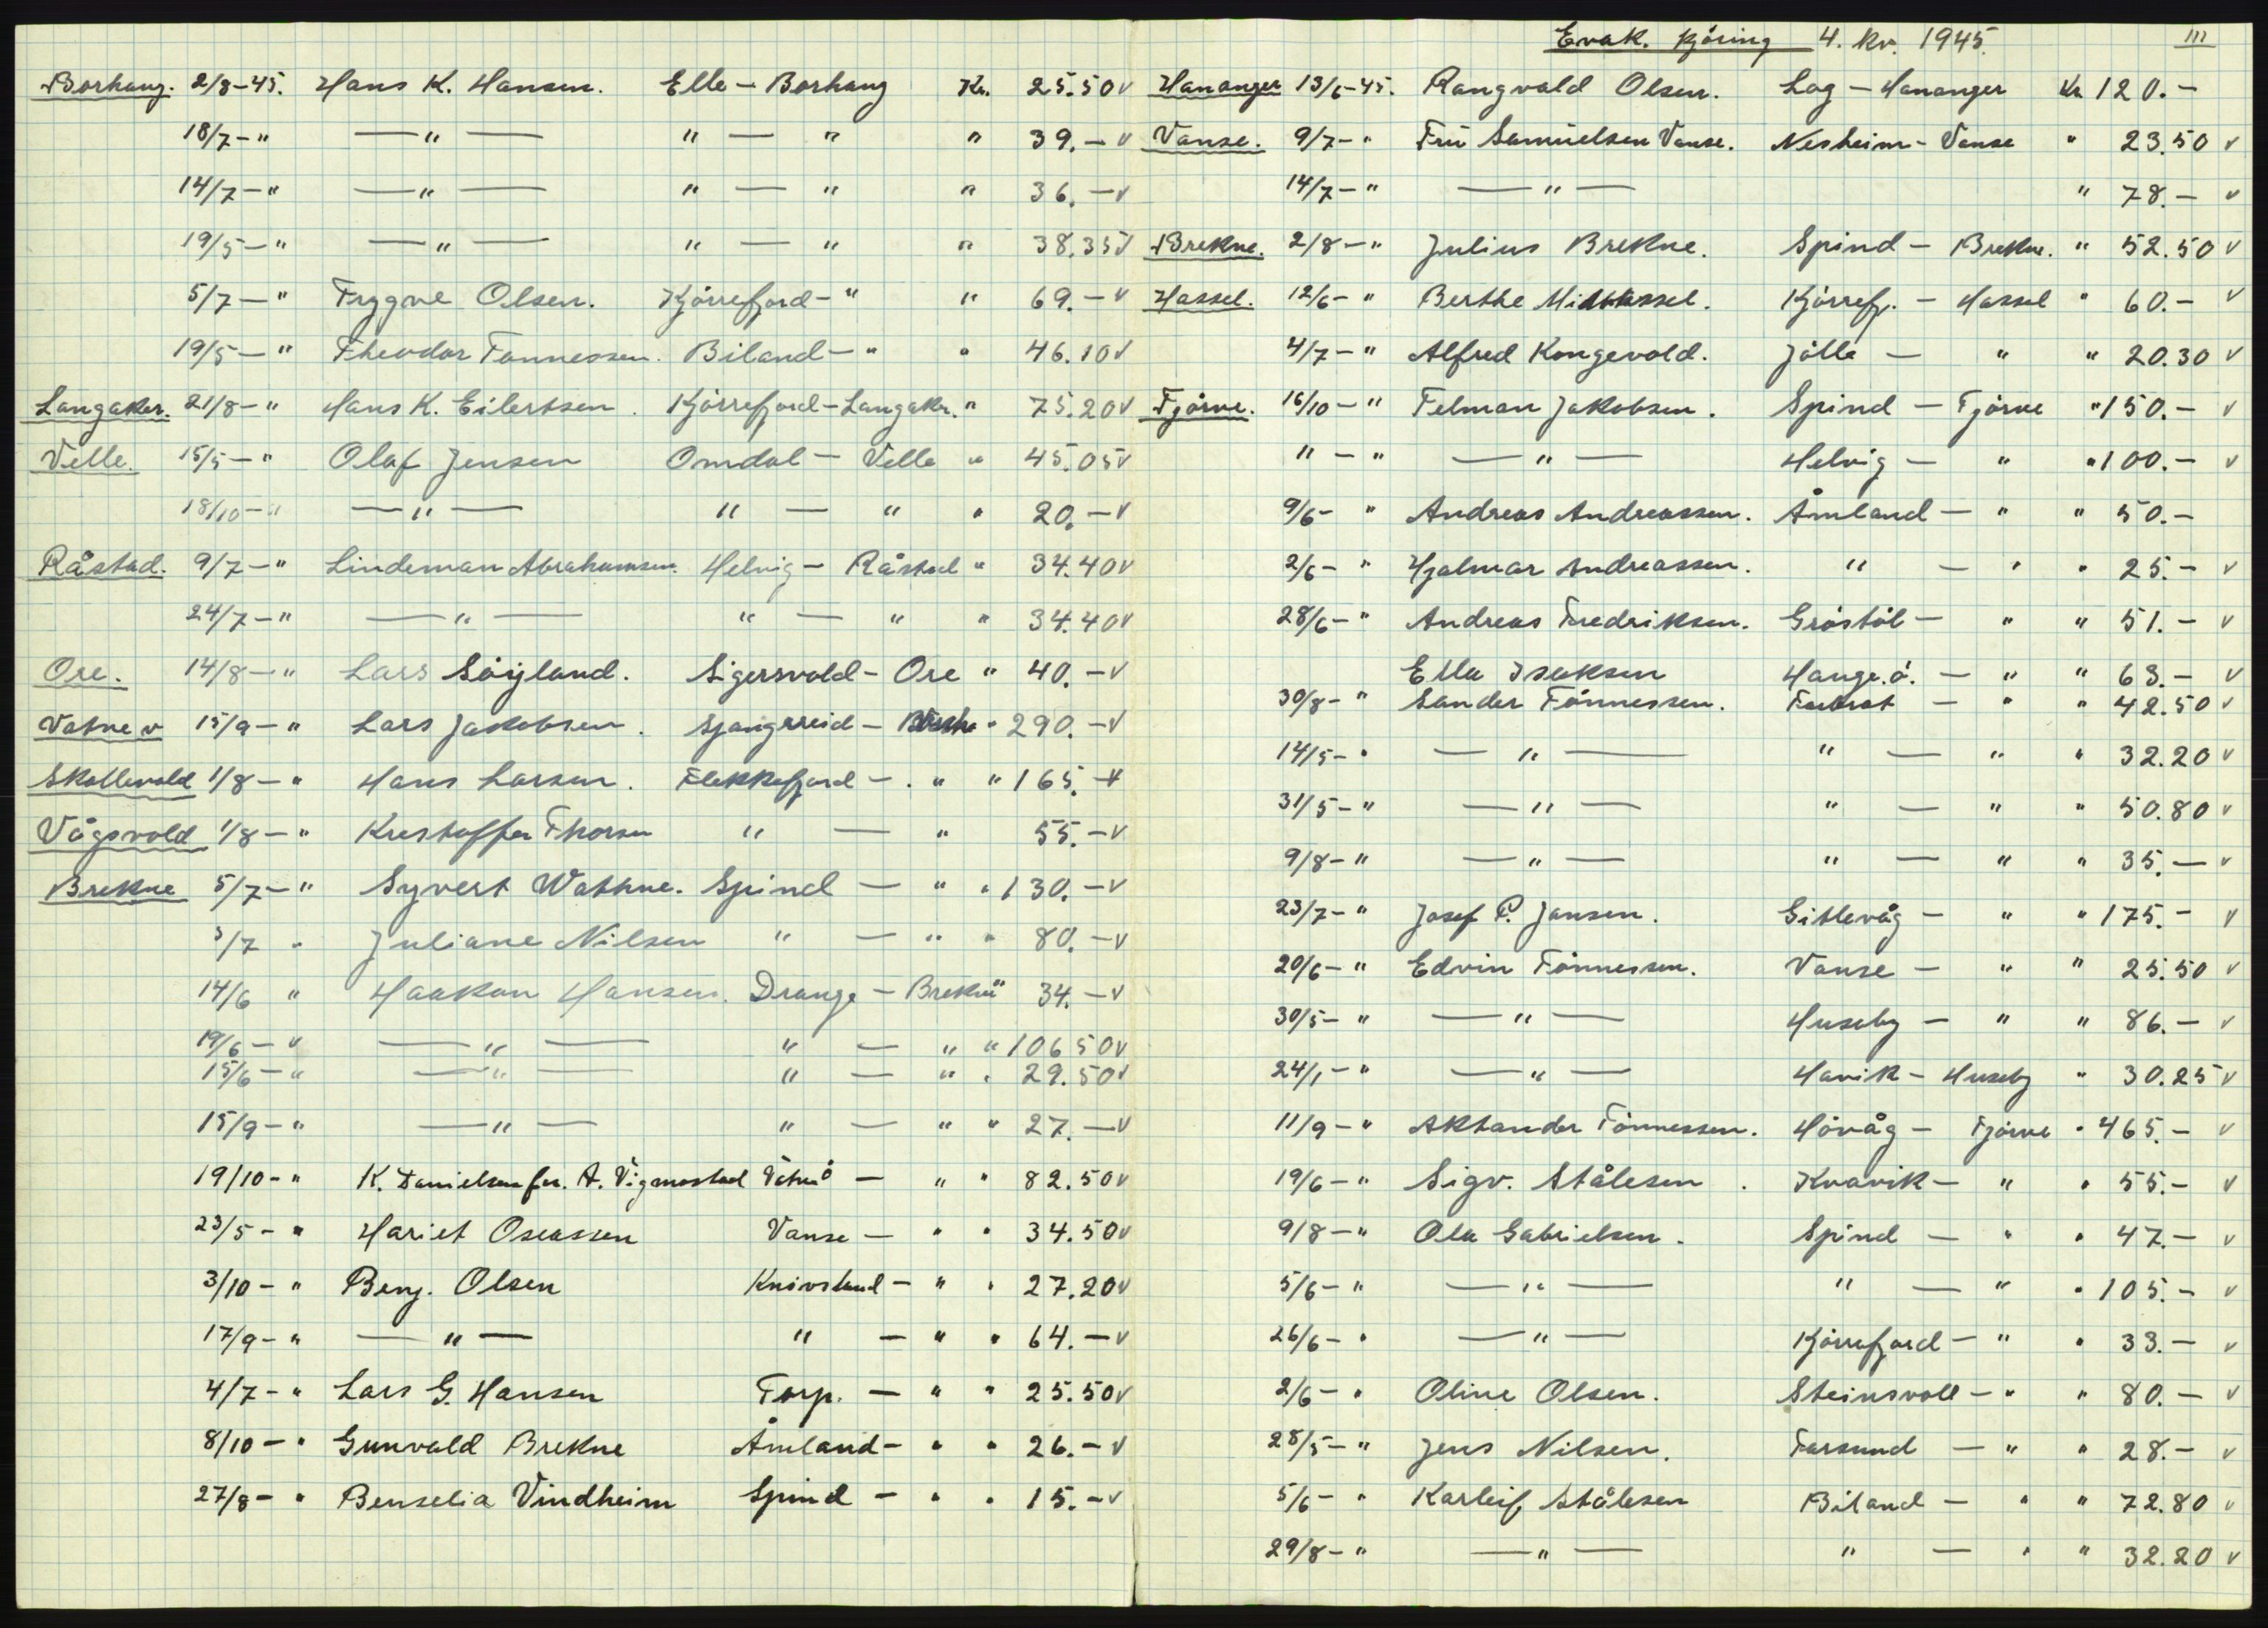 Evak. kjöring 4. kv. 1945. III
Borhaug. 2/8-45. Hans K. Hansen. Elle - Borhaug Kr. 25.50 v
18/7 - " — " — " — " " 39. - v
14/7 - " — " — " — " " 36. - v
19/5 - " — " — " — " " 38.35 v
5/7 - " Trygve Olsen. Kjörrefjord - " " 69. - v
19/5 - " Theodor Tønnessen. Biland - " " 46.10 v
Langaker. 21/8 - " Hans K. Eilertsen. Kjörrefjord - Langakr. " 75.20 v
Velle. 15/5 - " Olaf Jensen Omdal - Velle " 45.05 v
18/10 - " — " — " — " " 20. - v
Råstad. 9/7 - " Lindeman Abrahamsen. Helvig - Råstad " 34.40 v
24/7 - " — " — " — " " 34.40 v
Ore. 14/8 - " Lars Söyland. Sigersvold - Ore " 40. - v
Vatne v 15/9 - " Lars Jakobsen. Spangereid - " 290. - v
Skollevold 1/8 - " Hans Larsen. Flekkefjord - " " 165. - v
Vågsvold 1/8 - " Kristoffer Thorsen " — " 55. - v
Brekne 5/7 - " Syvert Wathne. Spind — " " 130. - v
3/7 " Juliane Nilsen " — " " 80. - v
14/6 " Haakon Hansen. Drange - Brekne " 34. - v
19/6 - " — " — " — " " 106 50 v
15/6 - " — " — " — " " 29.50 v
15/9 - " — " — " — " " 27. - v
19/10 - " K. Danielsen for. A. Vigmostad — " " 82.50 v
23/5 - " Hariet Oseassen Vanse — " " 34.50 v
3/10 - " Benj. Olsen Knivsland - " " 27.20 v
17/9 - " — " — " - " " 64. - v
4/7 - " Lars G. Hansen Torp. — " " 25.50 v
8/10 - " Gunvald Brekne Åmland - " " 26. - v
27/8 - " Benselia Vindheim Spind - " " 15. - v
Hananger 13/6-45. Rangvald Olsen. Log - Hananger Kr 120. -
Vanse. 9/7 - " Fru Samuelsen Vanse. Nesheim - Vanse " 23.50 v
14/7 - " — " — " 78. - v
Brekne. 2/8 - " Julius Brekne. Spind - Brekne. " 52.50 v
Hassel. 12/6 - " Berthe Midthassel. Kjörrefj. - Hassel " 60. - v
4/7 - " Alfred Kongevold. Jölle — " " 20.30 v
Tjörve. 16/10 - " Telman Jakobsen. Spind - Tjörve " 150. - v
" - " — " — Helvig - " " 100. - v
9/6 - " Andreas Andreassen. Åmland - " " 50. -
2/6 - " Hjalmar Andreassen. " - " " 25. - v
28/6 - " Andreas Fredriksen. Gröstöl - " " 51. - v
Ella Isaksen Hauge. ö. - " " 63. - v
30/8 - " Sander Tönnessen. - " " 42.50 v
14/5 - " — " — " — " " 32.20 v
31/5 - " — " — " — " " 50.80 v
9/8 - " — " — " — " " 35. - v
23/7 - " Josef P. Jansen. Gitlevåg - " " 175. - v
20/6 - " Edvin Tönnessen. Vanse - " " 25.50 v
30/5 - " — " — Huseby - " " 86. - v
24/1 - " — " — Havik - Huseby " 30.25 v
11/9 - " Aksander Tönnessen. Hövåg - Tjörve " 465. - v
19/6 - " Sigv. Stålesen. Kvavik - " " 55. - v
9/8 - " Ola Gabrielsen. Spind - " " 47. - v
5/6 - " — " — " — " " 105. - v
26/6 - " — " — Kjörrefjord - " " 33. - v
2/6 - " Oline Olsen. Steinsvoll - " " 80. - v
28/5 - " Jens Nilsen. Farsund - " " 28. - v
5/6 - " Karleif Stålesen Biland - " " 72.80 v
29/8 - " — " — " — " " 32.20 v